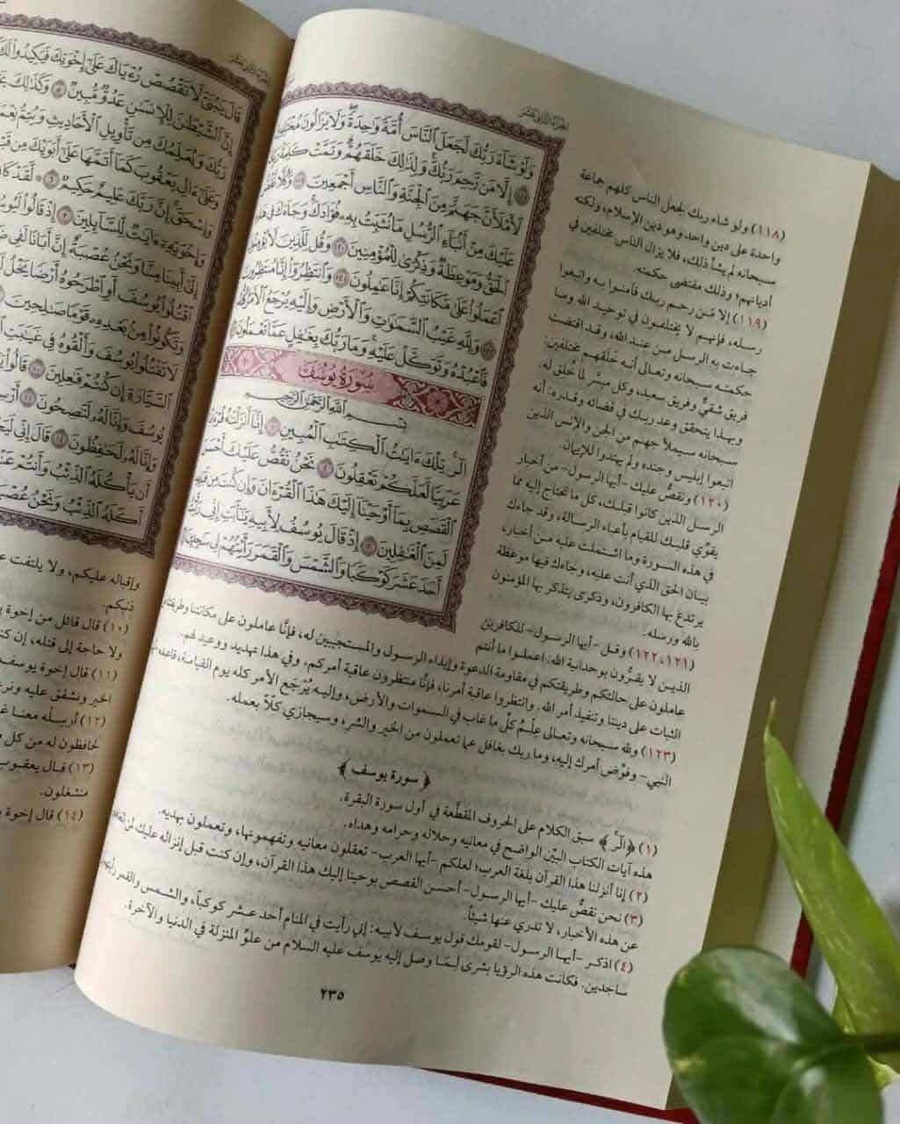 الجزء الثاني عشر
وَلَوْ شَآءَ رَبُّكَ لَجَعَلَ ٱلنَّاسَ أُمَّةً وَٰحِدَةً وَلَا يَزَالُونَ
﴿١١٨﴾ إِلَّا مَن رَّحِمَ رَبُّكَ وَلِذَٰلِكَ خَلَقَهُمْ وَتَمَّتْ كَلِمَةُ
لَأَمْلَأَنَّ جَهَنَّمَ مِنَ ٱلْجِنَّةِ وَٱلنَّاسِ أَجْمَعِينَ ﴿١١٩﴾ وَكُلًّا نَّقُصُّ
عَلَيْكَ مِنْ أَنۢبَآءِ ٱلرُّسُلِ مَا نُثَبِّتُ بِهِۦ فُؤَادَكَ وَجَآءَكَ فِى
ٱلْحَقُّ وَمَوْعِظَةٌ وَذِكْرَىٰ لِلْمُؤْمِنِينَ ﴿١٢٠﴾ وَقُل لِّلَّذِينَ لَا يُؤْمِنُونَ
ٱعْمَلُوا۟ عَلَىٰ مَكَانَتِكُمْ إِنَّا عَٰمِلُونَ ﴿١٢١﴾ وَٱنتَظِرُوٓا۟ إِنَّا مُنتَظِرُونَ
﴿١٢٢﴾ وَلِلَّهِ غَيْبُ ٱلسَّمَٰوَٰتِ وَٱلْأَرْضِ وَإِلَيْهِ يُرْجَعُ ٱلْأَمْرُ
فَٱعْبُدْهُ وَتَوَكَّلْ عَلَيْهِ وَمَا رَبُّكَ بِغَٰفِلٍ عَمَّا تَعْمَلُونَ
سُورَةُ يُوسُفَ
بِسْمِ ٱللَّهِ ٱلرَّحْمَٰنِ ٱلرَّحِيمِ
الٓر تِلْكَ ءَايَٰتُ ٱلْكِتَٰبِ ٱلْمُبِينِ ﴿١﴾ إِنَّآ أَنزَلْنَٰهُ
عَرَبِيًّا لَّعَلَّكُمْ تَعْقِلُونَ ﴿٢﴾ نَحْنُ نَقُصُّ عَلَيْكَ أَحْسَنَ
ٱلْقَصَصِ بِمَآ أَوْحَيْنَآ إِلَيْكَ هَٰذَا ٱلْقُرْءَانَ وَإِن كُنتَ مِن
لَمِنَ ٱلْغَٰفِلِينَ ﴿٣﴾ إِذْ قَالَ يُوسُفُ لِأَبِيهِ يَٰٓأَبَتِ إِنِّى
أَحَدَ عَشَرَ كَوْكَبًا وَٱلشَّمْسَ وَٱلْقَمَرَ رَأَيْتُهُمْ لِى
(١١٨) ولو شاء ربك لجعل الناس كلهم جماعة
واحدة على دين واحد وهو دين الإسلام، ولكنه
سبحانه لم يشأ ذلك، فلا يزال الناس مختلفين في
أديانهم؛ وذلك مقتضى حكمته.
(١١٩) إلا مَن رحم ربك فآمنوا به واتبعوا
رسله، فإنهم لا يختلفون في توحيد الله وما
جاءت به الرسل من عند الله، وقد اقتضت
حكمته سبحانه وتعالى أنه خلقهم مختلفين:
فريق شقيٌّ وفريق سعيد، وكل ميسَّر لما خُلق له.
وبهذا يتحقق وعد ربك في قضائه وقدره: أنه
سبحانه سيملأ جهنم من الجن والإنس الذين
اتبعوا إبليس وجنده ولم يهتدوا للإيمان.
(١٢٠) ونقصُّ عليك -أيها الرسول- من أخبار
الرسل الذين كانوا قبلك، كل ما تحتاج إليه مما
يقوِّي قلبك للقيام بأعباء الرسالة، وقد جاءك
في هذه السورة وما اشتملت عليه من أخبار،
بيان الحق الذي أنت عليه، وجاءك فيها موعظة
يرتدع بها الكافرون، وذكرى يتذكر بها المؤمنون
بالله ورسله.
(١٢١، ١٢٢) وقل -أيها الرسول- للكافرين
الذين لا يقرُّون بوحدانية الله: اعملوا ما أنتم
عاملون على حالتكم وطريقتكم في مقاومة الدعوة وإيذاء الرسول والمستجيبين له، فإنَّا عاملون على مكانتنا وطريقتنا
الثبات على ديننا وتنفيذ أمر الله. وانتظروا عاقبة أمرنا، فإنَّا منتظرون عاقبة أمركم. وفي هذا تهديد ووعيد لهم.
(١٢٣) ولله سبحانه وتعالى عِلْمُ كلِّ ما غاب في السموات والأرض، وإليه يُرْجَع الأمر كله يوم القيامة،
النبي- وفوِّض أمرك إليه، وما ربك بغافل عما تعملون من الخير والشر، وسيجازي كلًّا بعمله.
﴿سورة يوسف﴾
(١) ﴿الٓر﴾ سبق الكلام على الحروف المقطَّعة في أول سورة البقرة.
هذه آيات الكتاب البيِّن الواضح في معانيه وحلاله وحرامه وهداه.
(٢) إنا أنزلنا هذا القرآن بلغة العرب؛ لعلكم -أيها العرب- تعقلون معانيه وتفهمونها، وتعملون بهديه.
(٣) نحن نقصُّ عليك -أيها الرسول- أحسن القصص بوحينا إليك هذا القرآن، وإن كنت قبل إنزاله عليك لمن
عن هذه الأخبار، لا تدري عنها شيئاً.
(٤) اذكر -أيها الرسول- لقومك قول يوسف لأبيه: إني رأيت في المنام أحد عشر كوكباً، والشمس والقمر
ساجدين. فكانت هذه الرؤيا بشرى لِمَا وصل إليه يوسف عليه السلام من علوِّ المنزلة في الدنيا والآخرة.
٢٣٥
قَالَ يَٰبُنَىَّ لَا تَقْصُصْ رُءْيَاكَ عَلَىٰٓ إِخْوَتِكَ فَيَكِيدُوا۟
إِنَّ ٱلشَّيْطَٰنَ لِلْإِنسَٰنِ عَدُوٌّ مُّبِينٌ ﴿٥﴾ وَكَذَٰلِكَ
رَبُّكَ وَيُعَلِّمُكَ مِن تَأْوِيلِ ٱلْأَحَادِيثِ وَيُتِمُّ
وَعَلَىٰٓ ءَالِ يَعْقُوبَ كَمَآ أَتَمَّهَا عَلَىٰٓ أَبَوَيْكَ مِن
وَإِسْحَٰقَ إِنَّ رَبَّكَ عَلِيمٌ حَكِيمٌ ﴿٦﴾ لَّقَدْ كَانَ
وَإِخْوَتِهِۦٓ ءَايَٰتٌ لِّلسَّآئِلِينَ ﴿٧﴾ إِذْ قَالُوا۟ لَيُوسُفُ
إِلَىٰٓ أَبِينَا مِنَّا وَنَحْنُ عُصْبَةٌ إِنَّ أَبَانَا لَفِى
ٱقْتُلُوا۟ يُوسُفَ أَوِ ٱطْرَحُوهُ أَرْضًا يَخْلُ
وَتَكُونُوا۟ مِنۢ بَعْدِهِۦ قَوْمًا صَٰلِحِينَ
لَا تَقْتُلُوا۟ يُوسُفَ وَأَلْقُوهُ فِى غَيَٰبَتِ
ٱلسَّيَّارَةِ إِن كُنتُمْ فَٰعِلِينَ ﴿١٠﴾ قَالُوا۟
يُوسُفَ وَإِنَّا لَهُۥ لَنَٰصِحُونَ ﴿١١﴾
وَإِنَّا لَهُۥ لَحَٰفِظُونَ ﴿١٢﴾ قَالَ إِنِّى
أَن يَأْكُلَهُ ٱلذِّئْبُ وَأَنتُمْ
أَكَلَهُ ٱلذِّئْبُ وَنَحْنُ عُصْبَةٌ
وإقباله عليكم، ولا يلتفت
ذنبكم.
(١٠) قال قائل من إخوة
ولا حاجة إلى قتله، إن
(١١) قال إخوة يوسف
الخير ونشفق عليه
(١٢) أرسله معنا
لحافظون له من كل
(١٣) قال يعقوب
منشغلون.
(١٤) قال إخوة